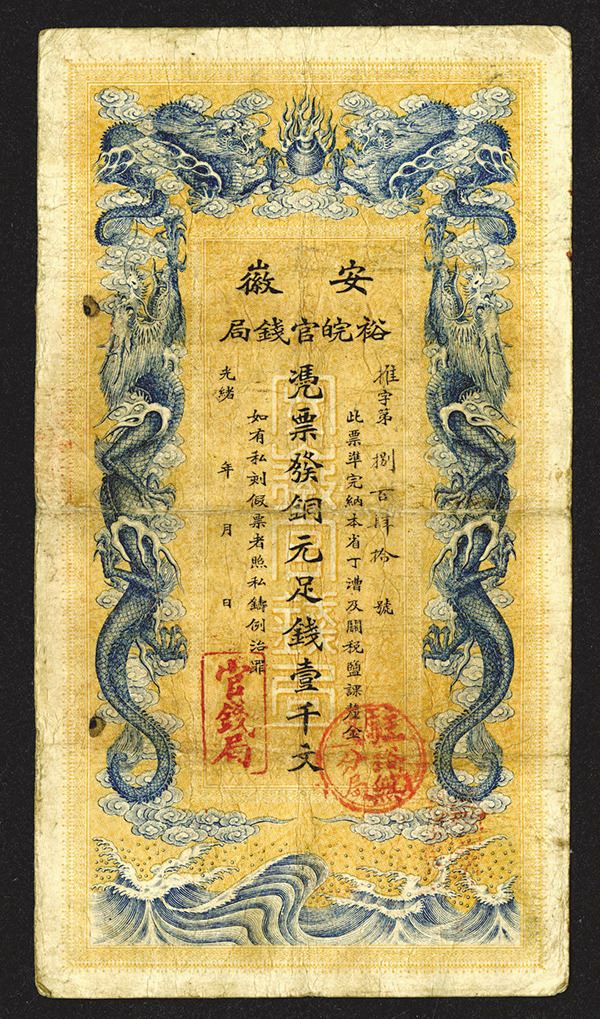 安徽
裕皖官錢局
推字第捌百肆拾號
此票準完納本省丁漕及關稅鹽課釐金
憑票發銅元足錢壹千文
如有私刻假票者照私鑄例治罪
光緒 年 月 日
官錢局
駐蕪
分局